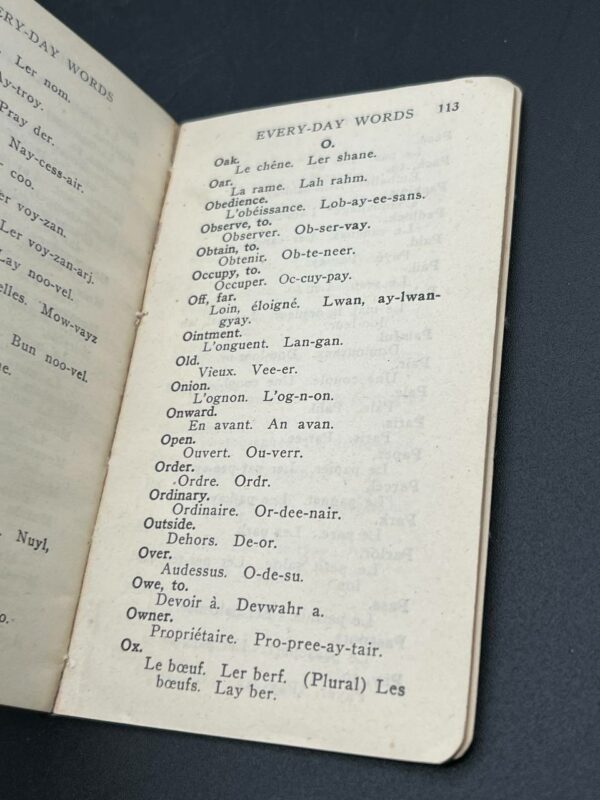 ERY-DAY WORDS
Ler nom.
Ay-troy.
Pray der.
Nay-cess-air.
coo.
er voy-zan.
Ler voy-zan-arj.
Lay noo-vel.
elles. Mow-vayz
Bun noo-vel.
ne.
Nuyl,
o.
EVERY-DAY WORDS 113
O.
Oak.
Le chêne. Ler shane.
Oar.
La rame. Lah rahm.
Obedience.
L'obéissance. Lob-ay-ee-sans.
Observe, to.
Observer. Ob-ser-vay.
Obtain, to.
Obtenir. Ob-te-neer.
Occupy, to.
Occuper. Oc-cuy-pay.
Off, far.
Loin, éloigné. Lwan, ay-lwan-
gyay.
Ointment.
L'onguent. Lan-gan.
Old.
Vieux. Vee-er.
Onion.
L'ognon. L'og-n-on.
Onward.
En avant. An avan.
Open.
Ouvert. Ou-verr.
Order.
Ordre. Ordr.
Ordinary.
Ordinaire. Or-dee-nair.
Outside.
Dehors. De-or.
Over.
Audessus. O-de-su.
Owe, to.
Devoir à. Devwahr a.
Owner.
Propriétaire. Pro-pree-ay-tair.
Ox.
Le bœuf. Ler berf. (Plural) Les
bœufs. Lay ber.